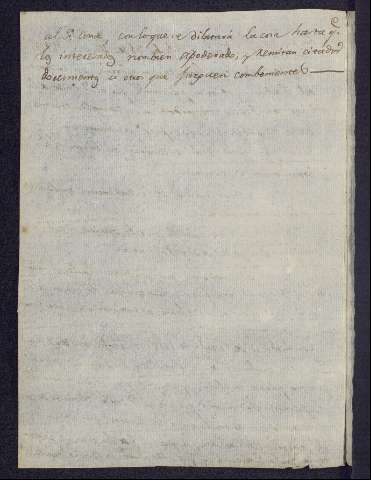 al S.r Conde con lo que se dilatará la cosa hasta q.e
los interesados nombren apoderado, y remitan citados
documentos ú otros que juzguen combenientes